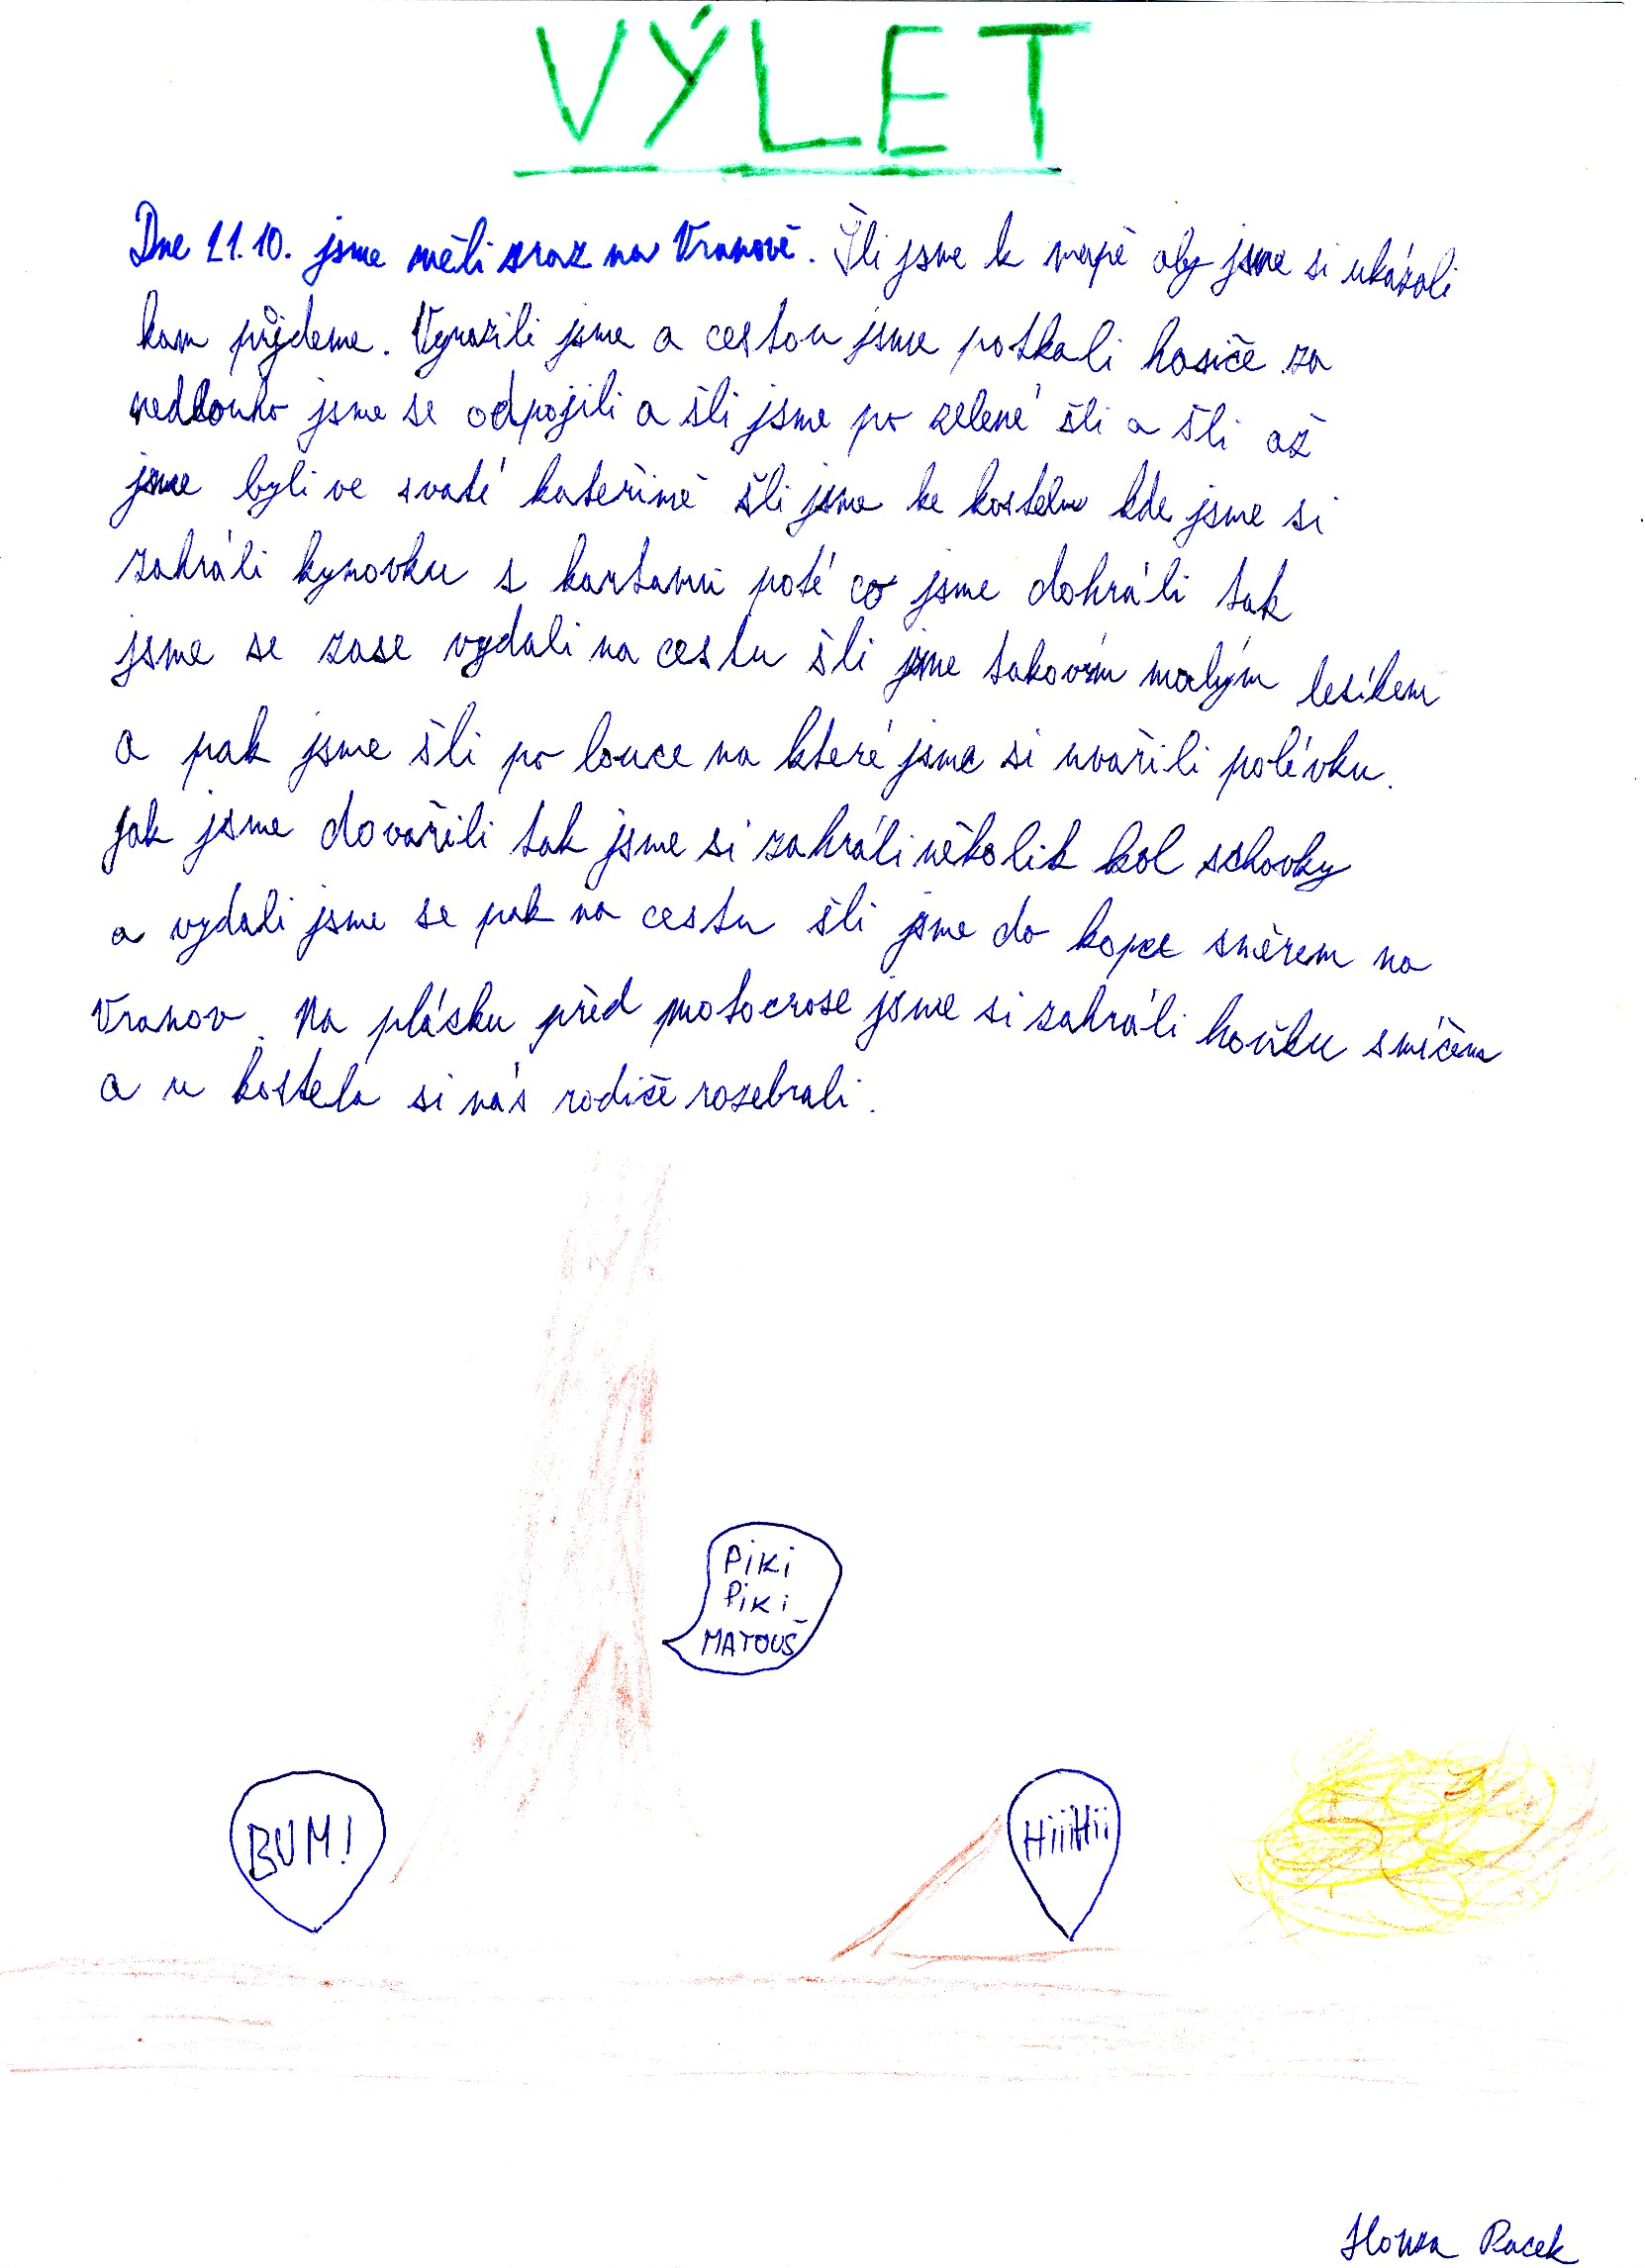 VÝLET
Dne 21.10. jsme měli sraz na Vranově. Šli jsme k mapě aby jsme si ukázali
kam půjdeme. Vyrazili jsme a cestou jsme potkali hasiče za
nedlouho jsme se odpojili a šli jsme po zelené šli a šli až
jsme byli ve svaté kateřině šli jsme ke kostelu kde jsme si
zahráli kymovku s kartami poté co jsme dohráli tak
jsme se zase vydali na cestu šli jsme takovím malým lesíkem
a pak jsme šli po louce na které jsme si uvařili polévku.
Jak jsme dovařili tak jsme si zahráli několik kol schovky
a vydali jsme se pak na cestu šli jsme do kopce směrem na
Vranov. Na plásku před motocrose jsme si zahráli honku s míčem
a u kostela si nás rodiče rozebrali.
PiKi
PiKi
MATOUŠ
BUM!
HiiHii
Honza Pacek